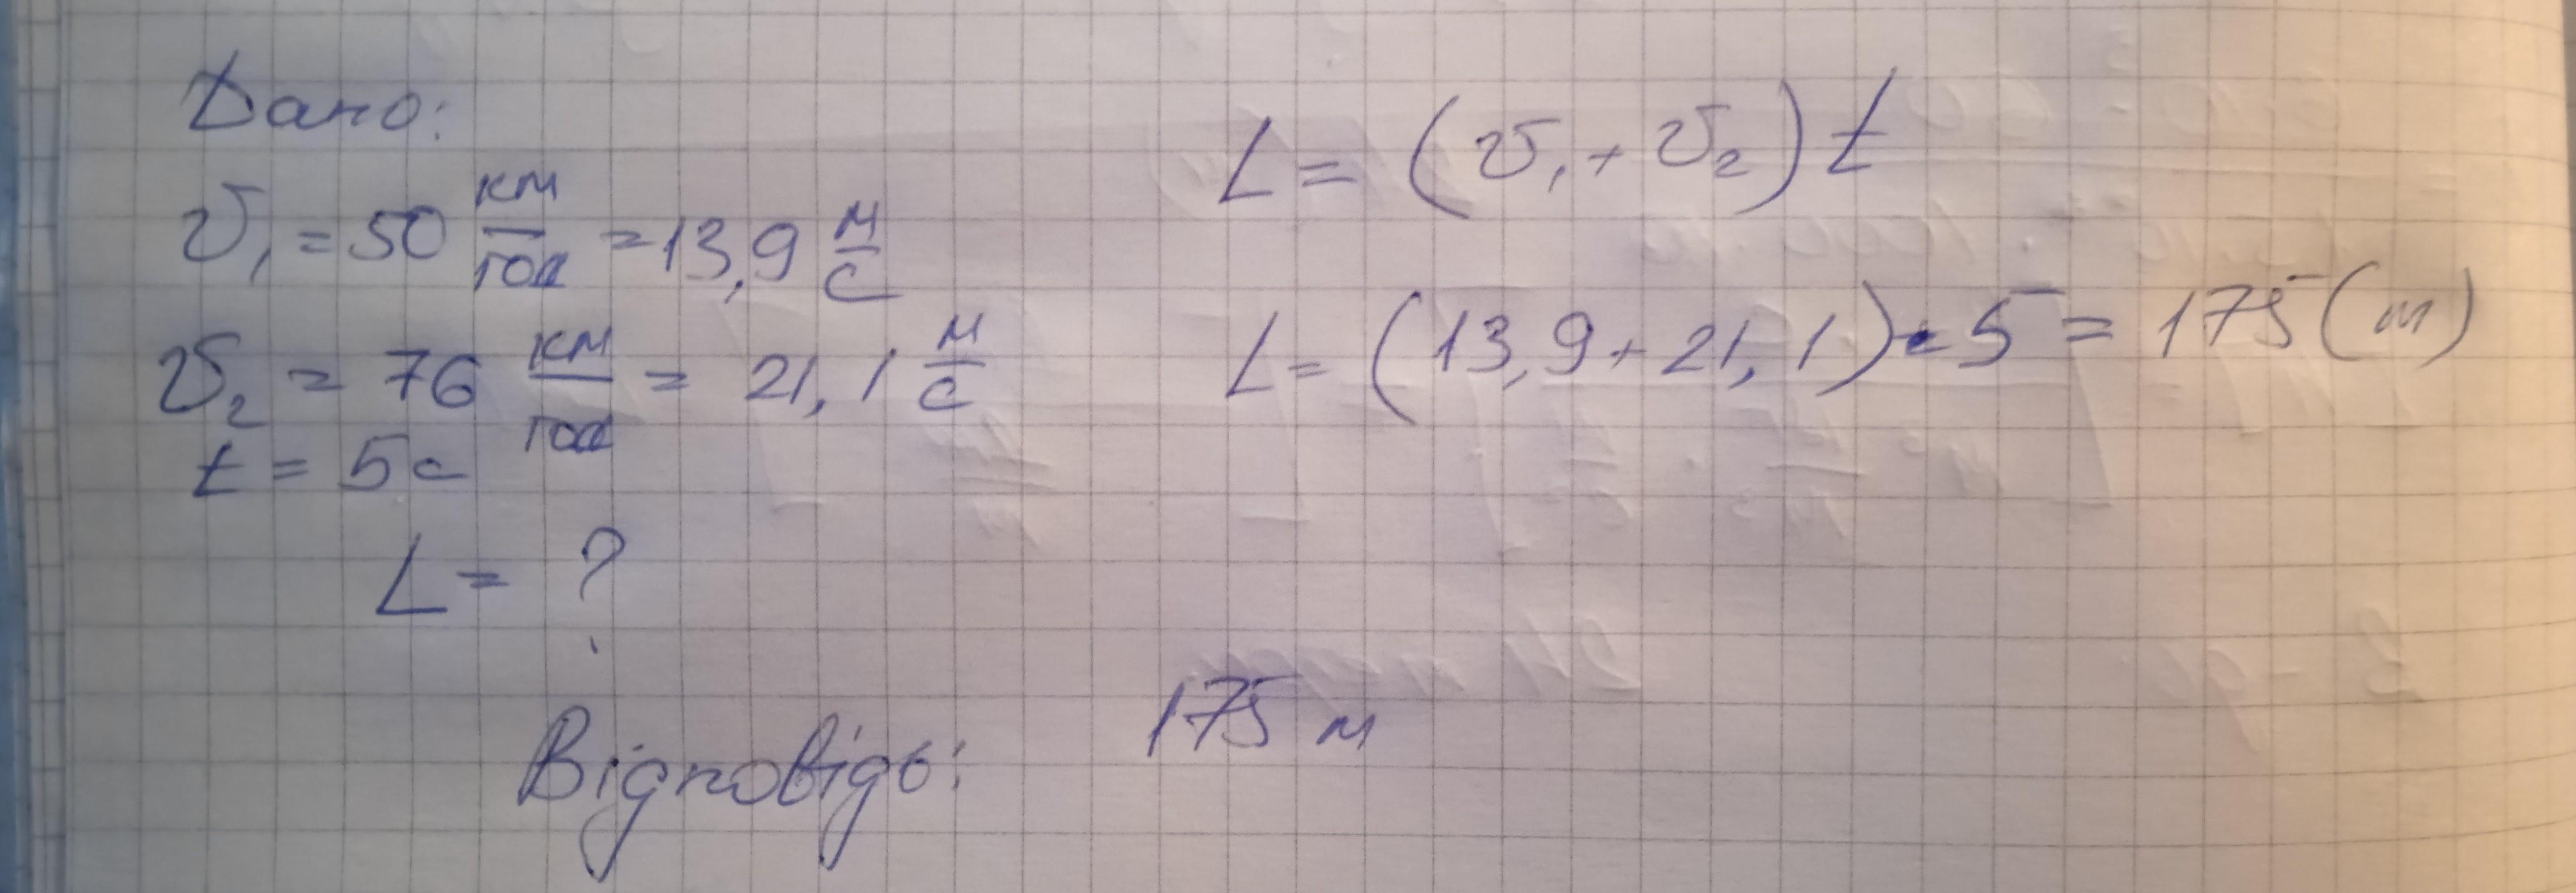 Дано:
v₁ = 50 км/год = 13,9 м/с
v₂ = 76 км/год = 21,1 м/с
t = 5с
L = ?
L = (v₁ + v₂) t
L = (13,9 + 21,1) · 5 = 175 (м)
Відповідь: 175 м